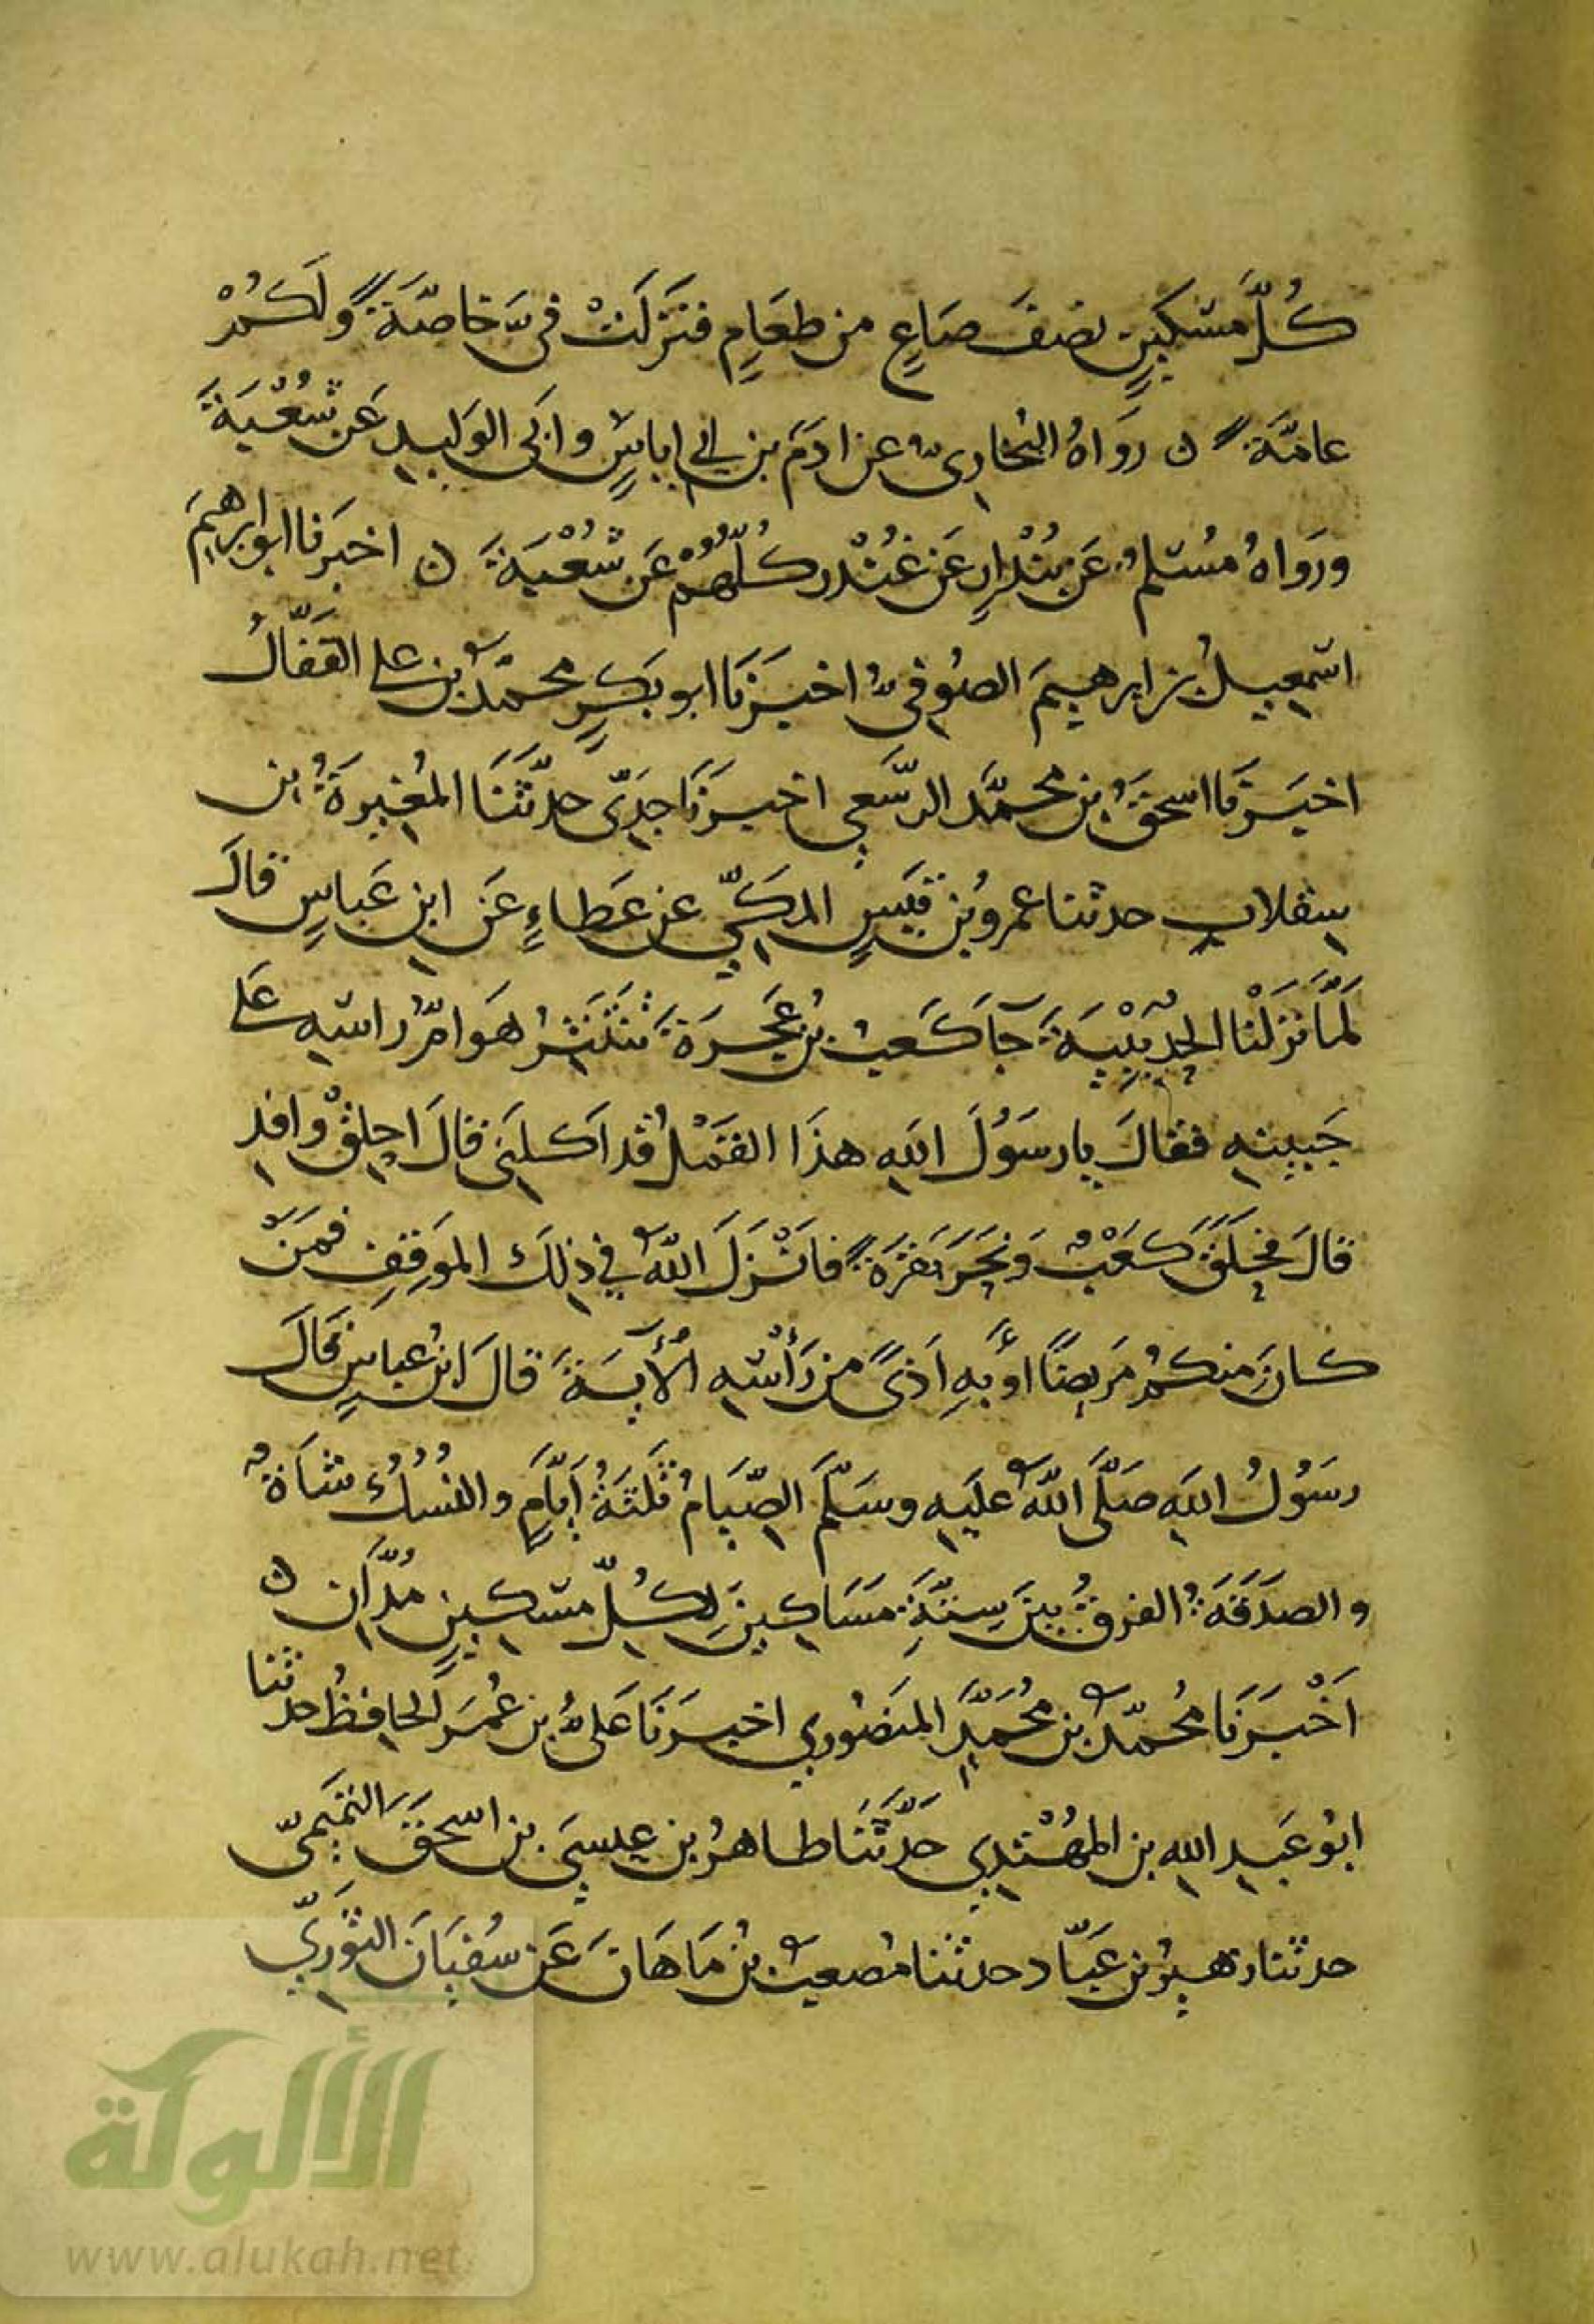 كُلَّ مسْكينٍ نصفَ صَاعٍ من طعَامٍ فنَزلَتْ فىَّ خاصَّةً ولَكُمْ
عامَّةً ه رَوَاهُ البُخارىُّ عن ادَمَ بن ابي اياسٍ وابَى الوَليدِ عَن شُعْبَةَ
ورَوَاهُ مُسْلمٌ عَن بُنْدَارٍ عَن غُنْدر كُلّهُمْ عَن شُعْبَةَ ه اخبَرنا ابو ابرهيمَ
اسْمعِيلُ بن ابرهيمَ الصُوفىُّ اخبَرَنَا ابو بَكرٍ محمّدُ بن على القفَّالُ
اخبَرَنَا اسحقُ بن محمَّد الرسْعَنى اخبرَنَا جَدِىّ حدّثَنَا المُغيرَةُ ابن
سِقلابٍ حدثنا عمرو بُن قَيسٍ المكىِّ عن عَطاءٍ عَن ابن عَباسٍ قالَ
لَمَّا نَزَلْنا الحُدَيْبِيَةَ جآ كَعبُ بنُ عُجرَةَ تنتَثِرُ هَوامُّ راسِهِ عَلى
جَبينِهِ فقالَ يا رسَوُلَ اللهِ هذَا القَمْلُ قد اَكلَنَى قالَ احلِقْ وافدِ
قالَ فحَلَقَ كَعْبٌ وَنَحَرَ بَقرَةً فاَنْزَلَ اللهُ في ذلِكَ المَوقِفِ فمَنْ
كانَ منكمُ مَريضًا اوْ بِهِ اَذىً من رَأْسِهِ اْلاَيةَ قالَ ابنُ عباسٍ قَالَ
رسَوُلُ اللهِ صَلَّى اللهُ عليَهِ وسَلَّمَ الصِّيَامُ ثلَثَةُ اَيَّامٍ والنُسُكُ شاةٌ
والصدَقَةُ الفَرقُ بينَ سِتَّةِ مسَاكِينَ لِكُلِّ مسْكِينٍ مُدَّانِ ه
اَخْبَرَنَا مُحمّدُ بن مُحمَّدٍ المنَصُورِي اخبَرَنَا عَلىُّ بن عُمَرَ الحافِظُ حدثنا
ابُو عَبدِ اللهِ بن المُهْتَدِي حَدَّثَنَا طاهرُ بن عِيسىَ بن اسحقَ التَميمىّ
حدثنا زهَيرُ بن عَبّاد حدثنا مُصعبُ بُن مَاهَانَ عَن سُفيَانَ الثوَرِيِّ
الألوكة
www.alukah.net